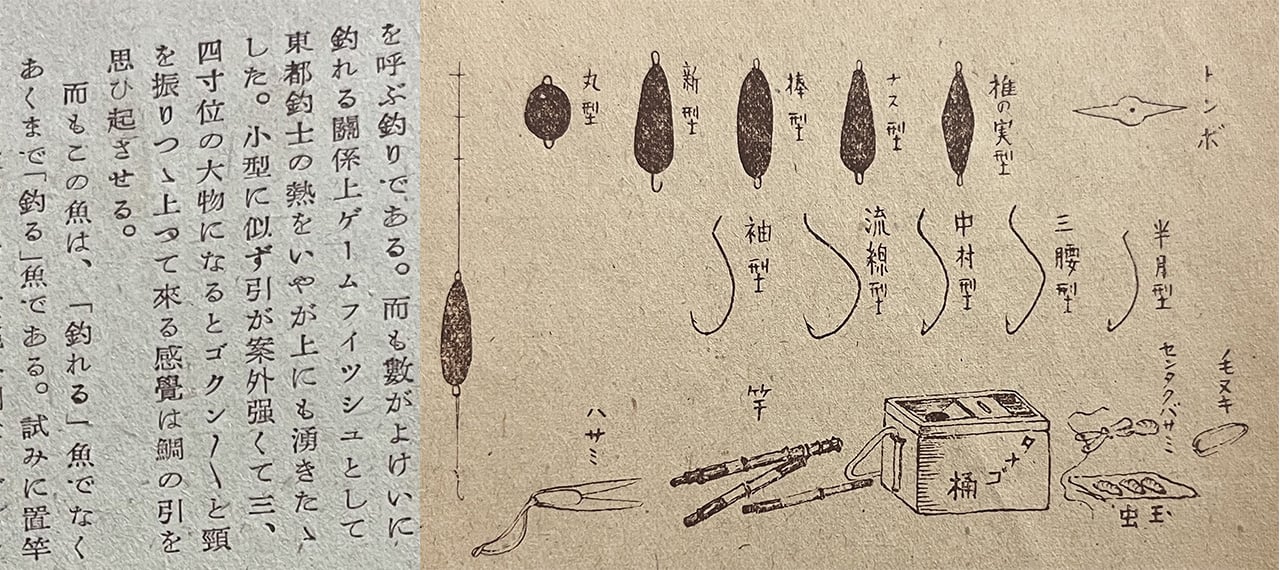 を呼ぶ釣りである。而も數がよけいに
釣れる關係上ゲームフイツシュとして
東都釣士の熱をいやが上にも湧きたゝ
した。小型に似ず引が案外强くて三、
四寸位の大物になるとゴクン〳〵と頸
を振りつゝ上つて來る感覺は鯛の引を
思ひ起させる。
而もこの魚は、「釣れる」魚でなく
あくまで「釣る」魚である。試みに置竿
トンボ
椎の実型
ナス型
棒型
新型
丸型
半月型
三腰型
中村型
流線型
袖型
毛ヌキ
センタクバサミ
玉虫
タナゴ桶
竿
ハサミ